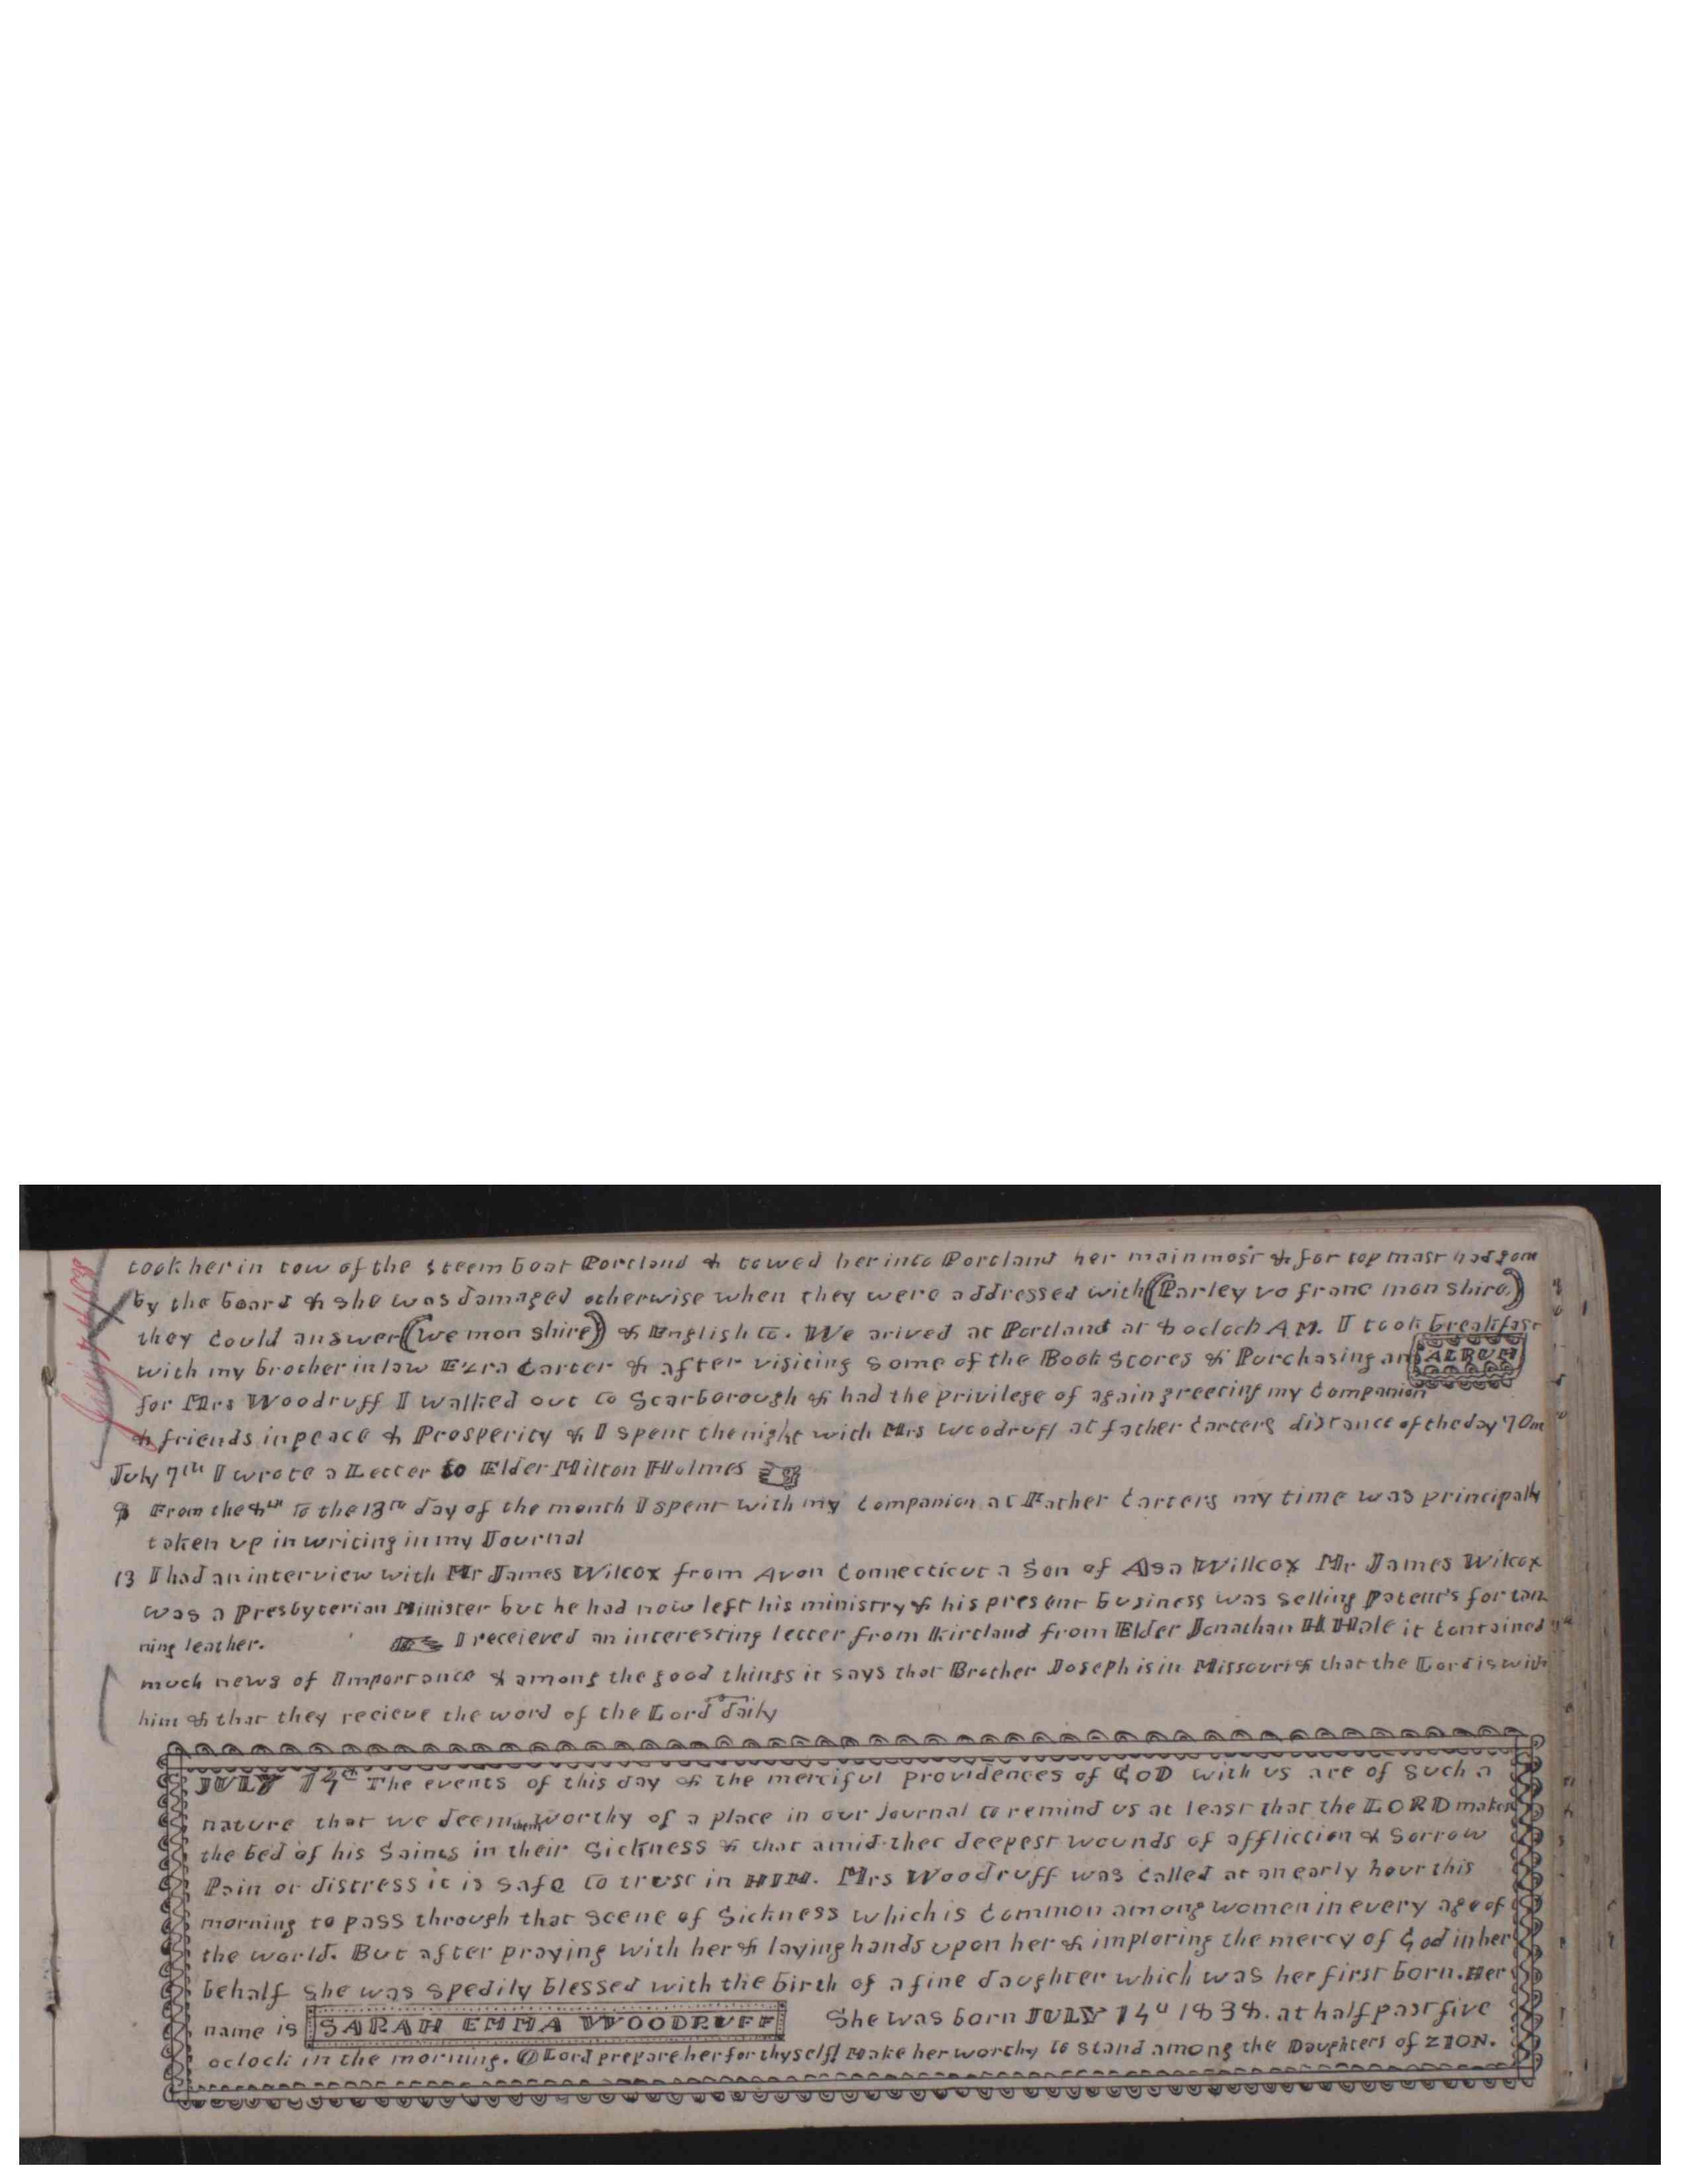 took her in tow of the steem boat Portland & towed her into Portland her mainmost & for top mast had gone
by the board & she was damaged otherwise when they were addressed with (Parley vo franc mon shire.)
they could answer (we mon shire) & English to. We arived at Portland at 8 oclock A.M. I took breakfast
with my brother in law Ezra Carter & after visiting some of the Book Stores & Purchasing an ALBUM
for Mrs Woodruff I walked out to Scarborough & had the privilege of again greeting my Companion
& friends in peace & Prosperity & I spent the night with Mrs Woodruff at father Carters distance of the day 70m
July 7th I wrote a Letter to Elder Milton Holmes
8 From the 8th To the 13th day of the month I spent with my Companion at Father Carters my time was principally
taken up in writing in my Journal
13 I had an interview with Mr James Wilcox from Avon Connecticut a Son of Asa Willcox Mr James Wilcox
was a Presbyterian Minister but he had now left his ministry & his present business was selling Patent's for tan
ning leather. I receieved an interesting letter from Kirtland from Elder Jonathan H Hale it contained
much news of Importance & among the good things it says that Brother Joseph is in Missouri & that the Lord is with
him & that they recieve the word of the Lord daily
JULY 14t The events of this day & the merciful providences of GOD with us are of such a
nature that we deem them worthy of a place in our Journal to remind us at least that the LORD maketh
the bed of his Saints in their Sickness & that amid thee deepest wounds of affliction & Sorrow
Pain or distress it is safe to trust in HIM. Mrs Woodruff was called at an early hour this
morning to pass through that scene of Sickness which is common among women in every age of
the world. But after praying with her & laying hands upon her & imploring the mercy of God in her
behalf she was spedily blessed with the birth of a fine daughter which was her first born. Her
name is SARAH EMMA WOODRUFF She was born JULY 14th 1838. at half past five
oclock in the morning. O Lord prepare her for thyself! Make her worthy to stand among the Daughters of ZION.